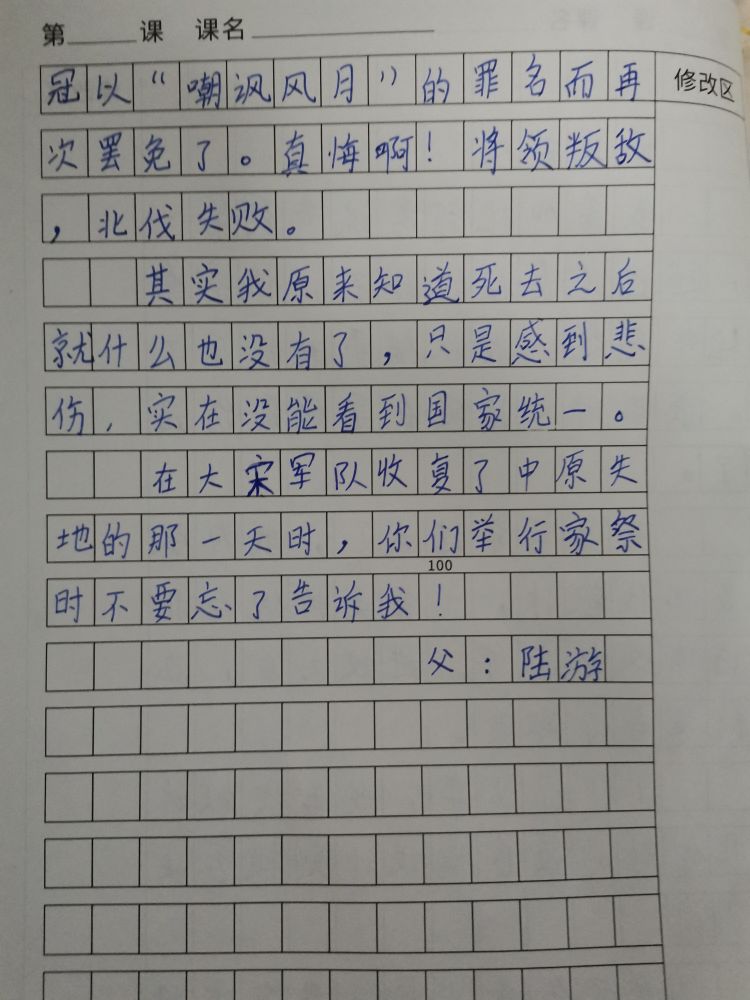 第______课 课名__________________
冠以“嘲讽风月”的罪名而再
修改区
次罢免了。真悔啊！将领叛敌
，北伐失败。
其实我原来知道死去之后
就什么也没有了，只是感到悲
伤，实在没能看到国家统一。
在大宋军队收复了中原失
地的那一天时，你们举行家祭
100
时不要忘了告诉我！
父：陆游